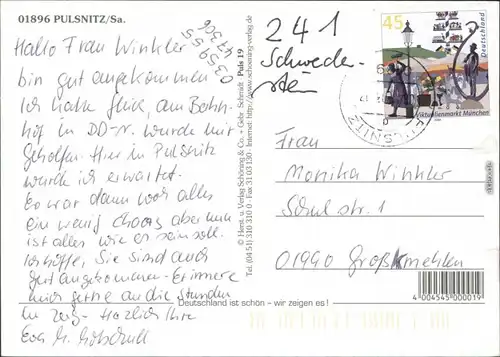 01896 PULSNITZ/Sa.
Hallo Frau Winkler
bin gut angekommen
Ich hatte Glück, am Bahn-
hof in DD-N. wurde mir
geholfen. Hier in Pulsnitz
wurde ich erwartet.
Es war dann wohl alles
ein wenig chaos aber nun
ist alles wie es sein soll.
Ich hoffe, Sie sind auch
gut angekommen. Erinnere
mich gerne an die Stunden
in Herzlich Ihre
Eva M.
03 59 55
47306
© Horst. u. Verlag Schöning & Co. + Gebr. Schmidt Puls 19
Tel. (04 51) 310 310 0 · Fax 31 03 130 · Internet http://www.schoening-verlag.de
241
Schwede-
stein
45
Deutschland
Viktualienmarkt München
PULSNITZ
Frau
Monika Winkler
Schulstr. 1
01990 Großkmehlen
4 004545 000019
Deutschland ist schön - wir zeigen es!